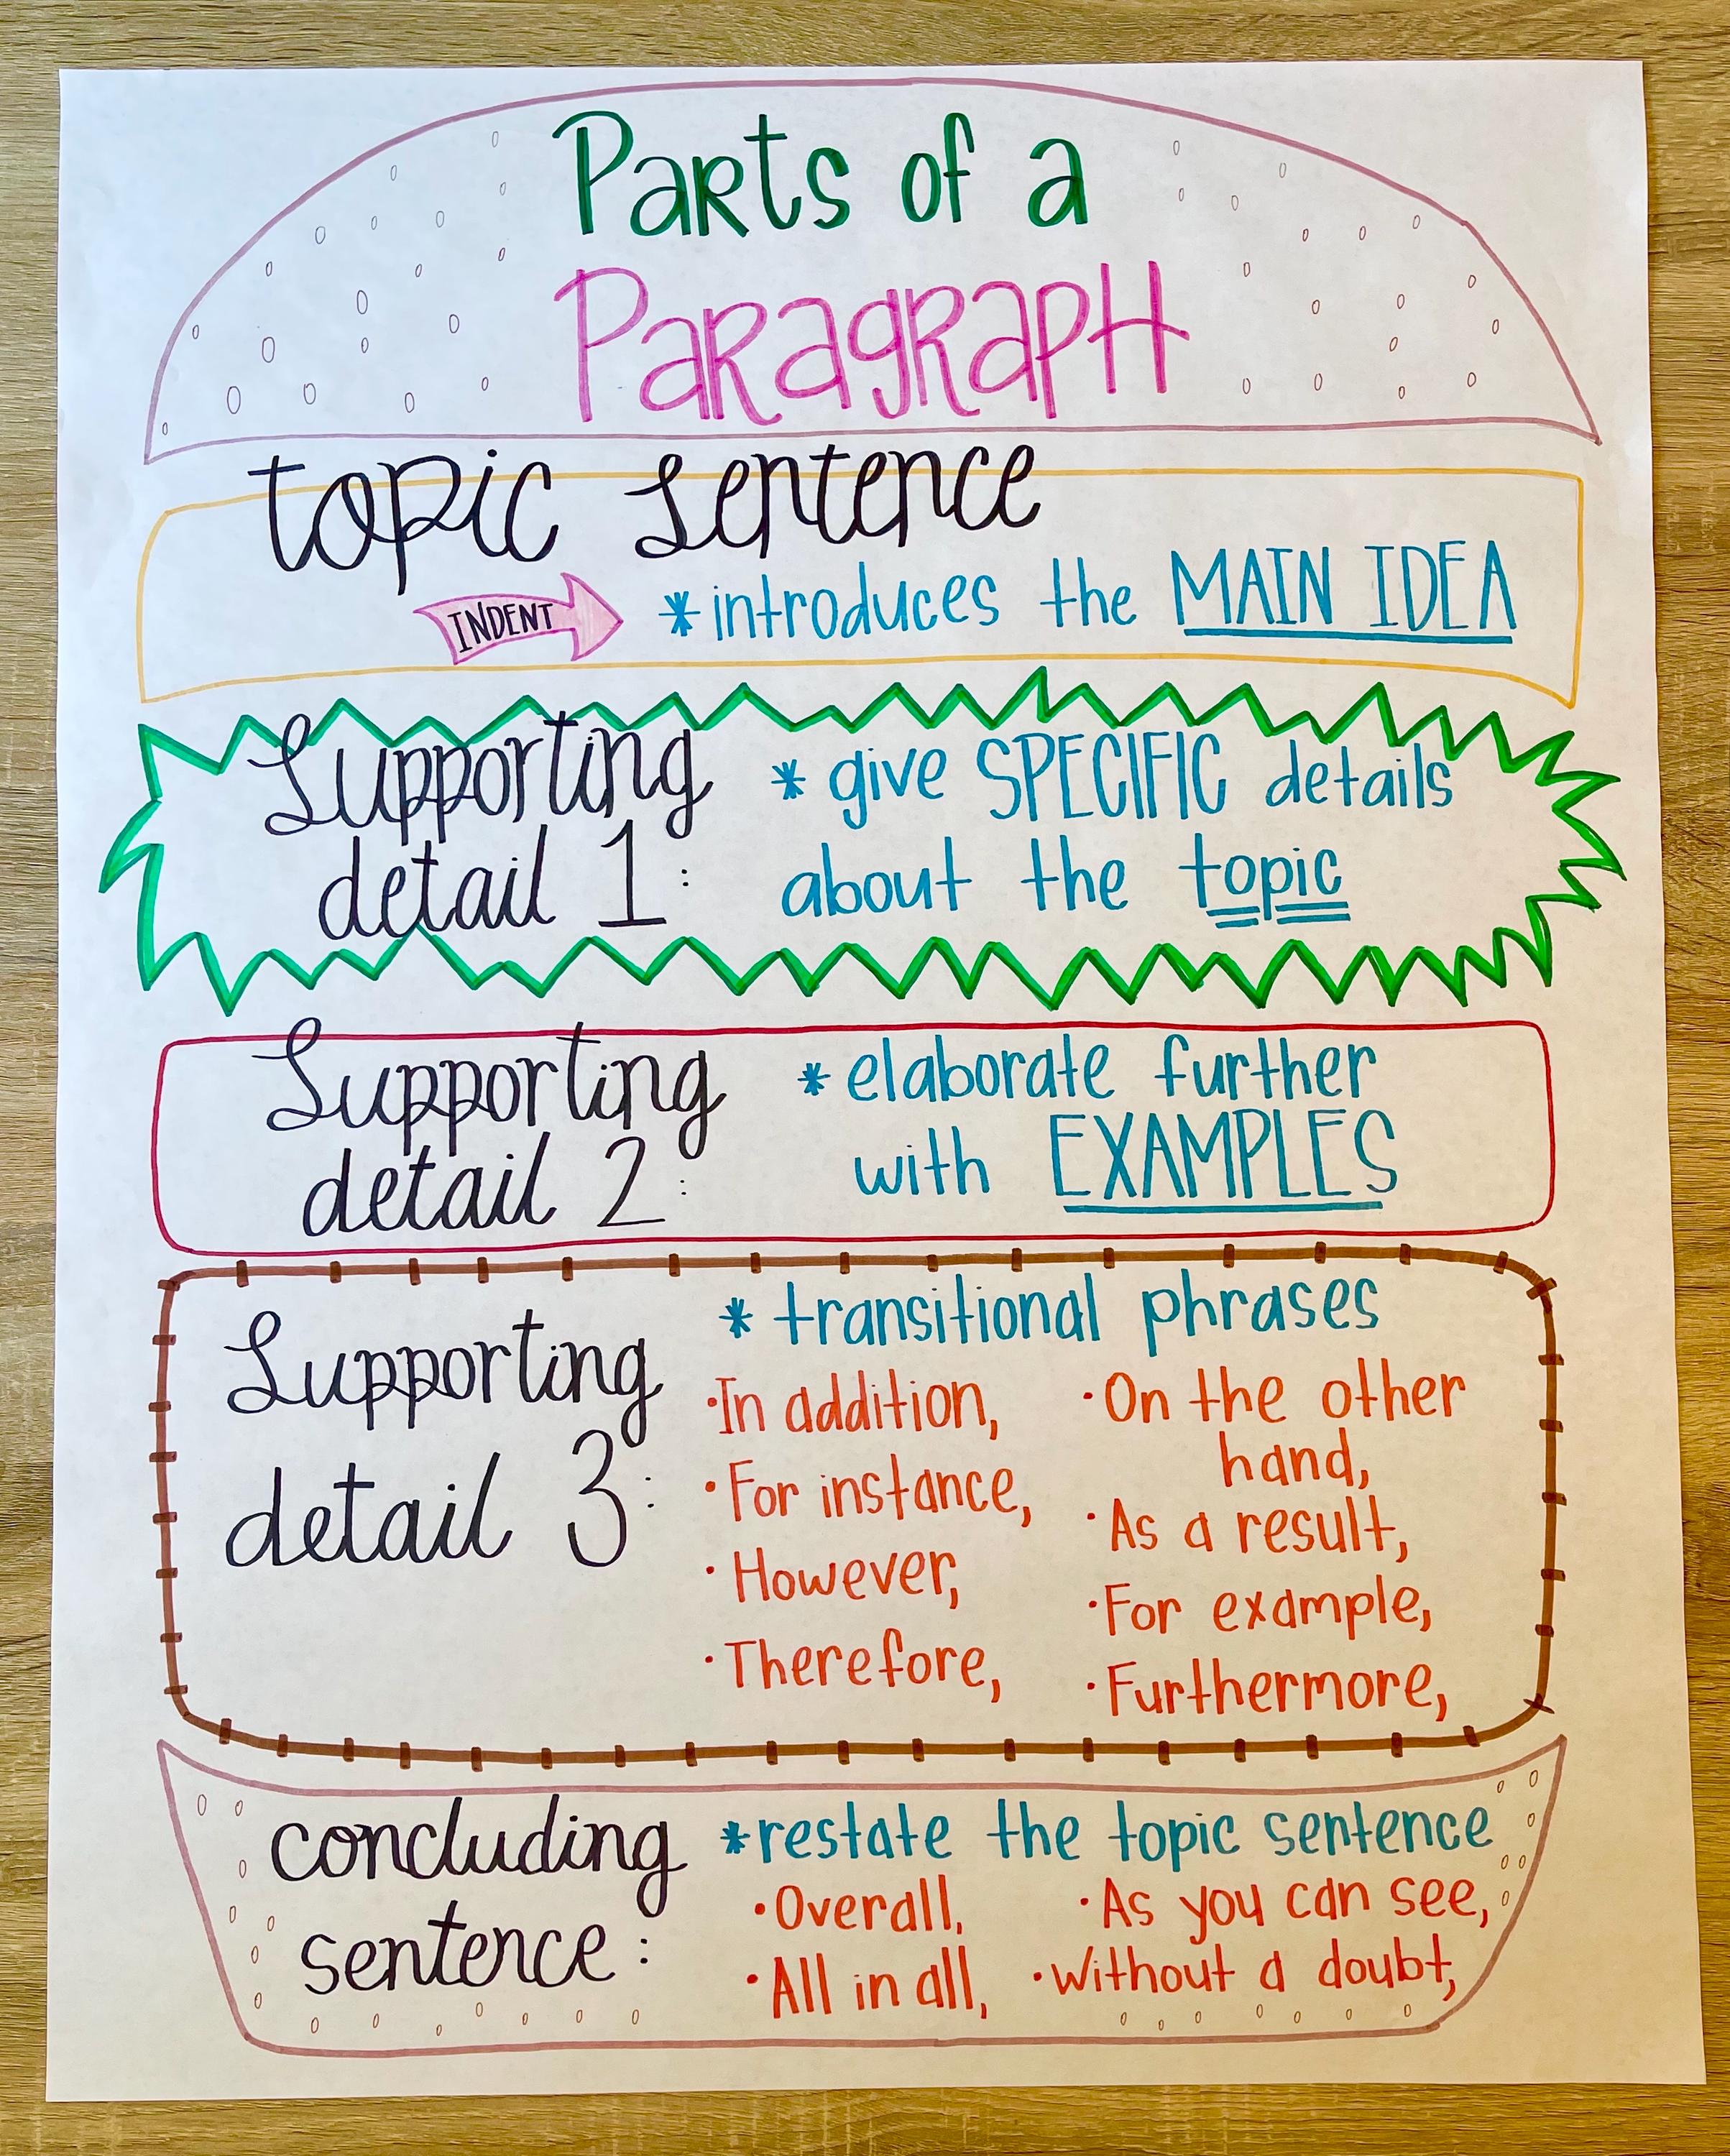 Parts of a
Paragraph
topic sentence
INDENT
*introduces the MAIN IDEA
Supporting
detail 1:
* give SPECIFIC details
about the topic
Supporting
detail 2:
* elaborate further
with EXAMPLES
Supporting
detail 3:
* transitional phrases
·In addition,
·For instance,
·However,
·Therefore,
·On the other
hand,
·As a result,
·For example,
·Furthermore,
concluding
sentence:
*restate the topic sentence
·Overall,
·As you can see,
·All in all,
·Without a doubt,